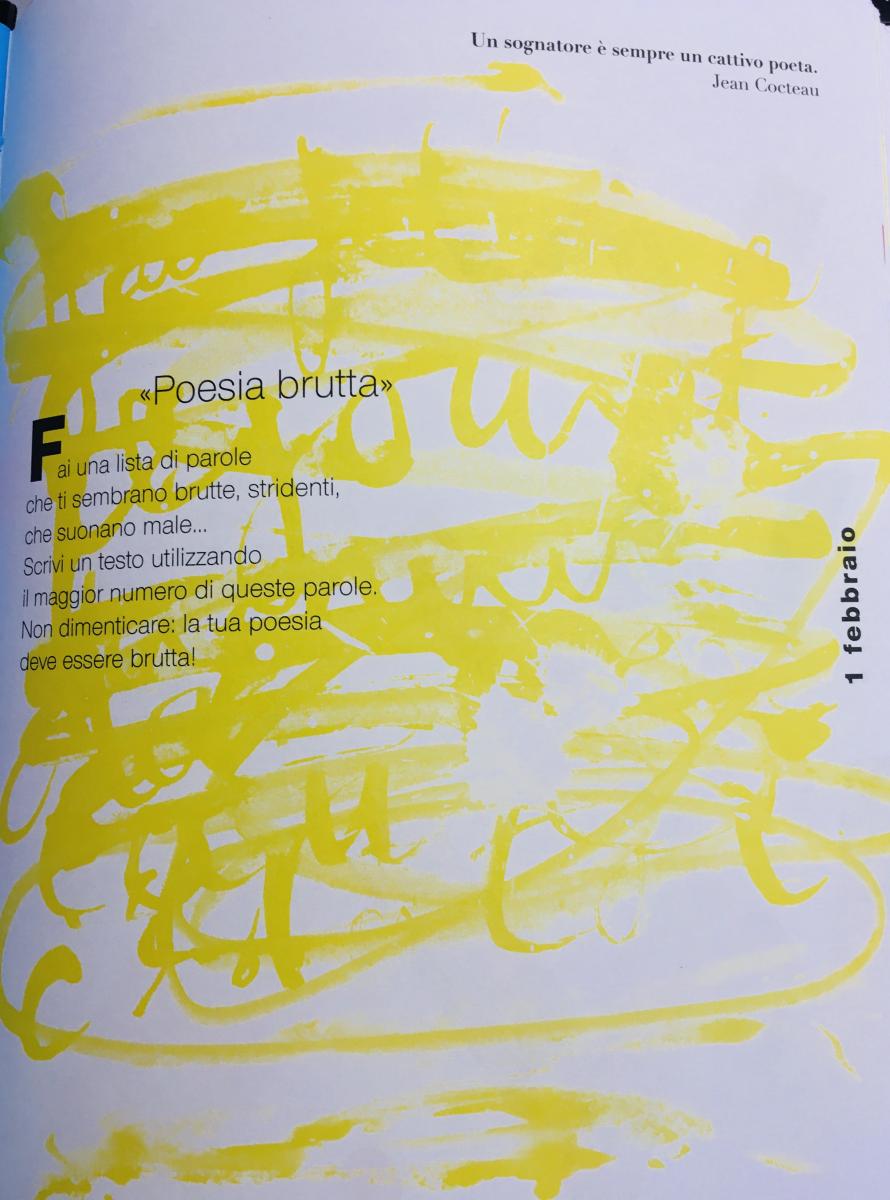 Un sognatore è sempre un cattivo poeta.
Jean Cocteau
«Poesia brutta»
Fai una lista di parole
che ti sembrano brutte, stridenti,
che suonano male...
Scrivi un testo utilizzando
il maggior numero di queste parole.
Non dimenticare: la tua poesia
deve essere brutta!
1 febbraio